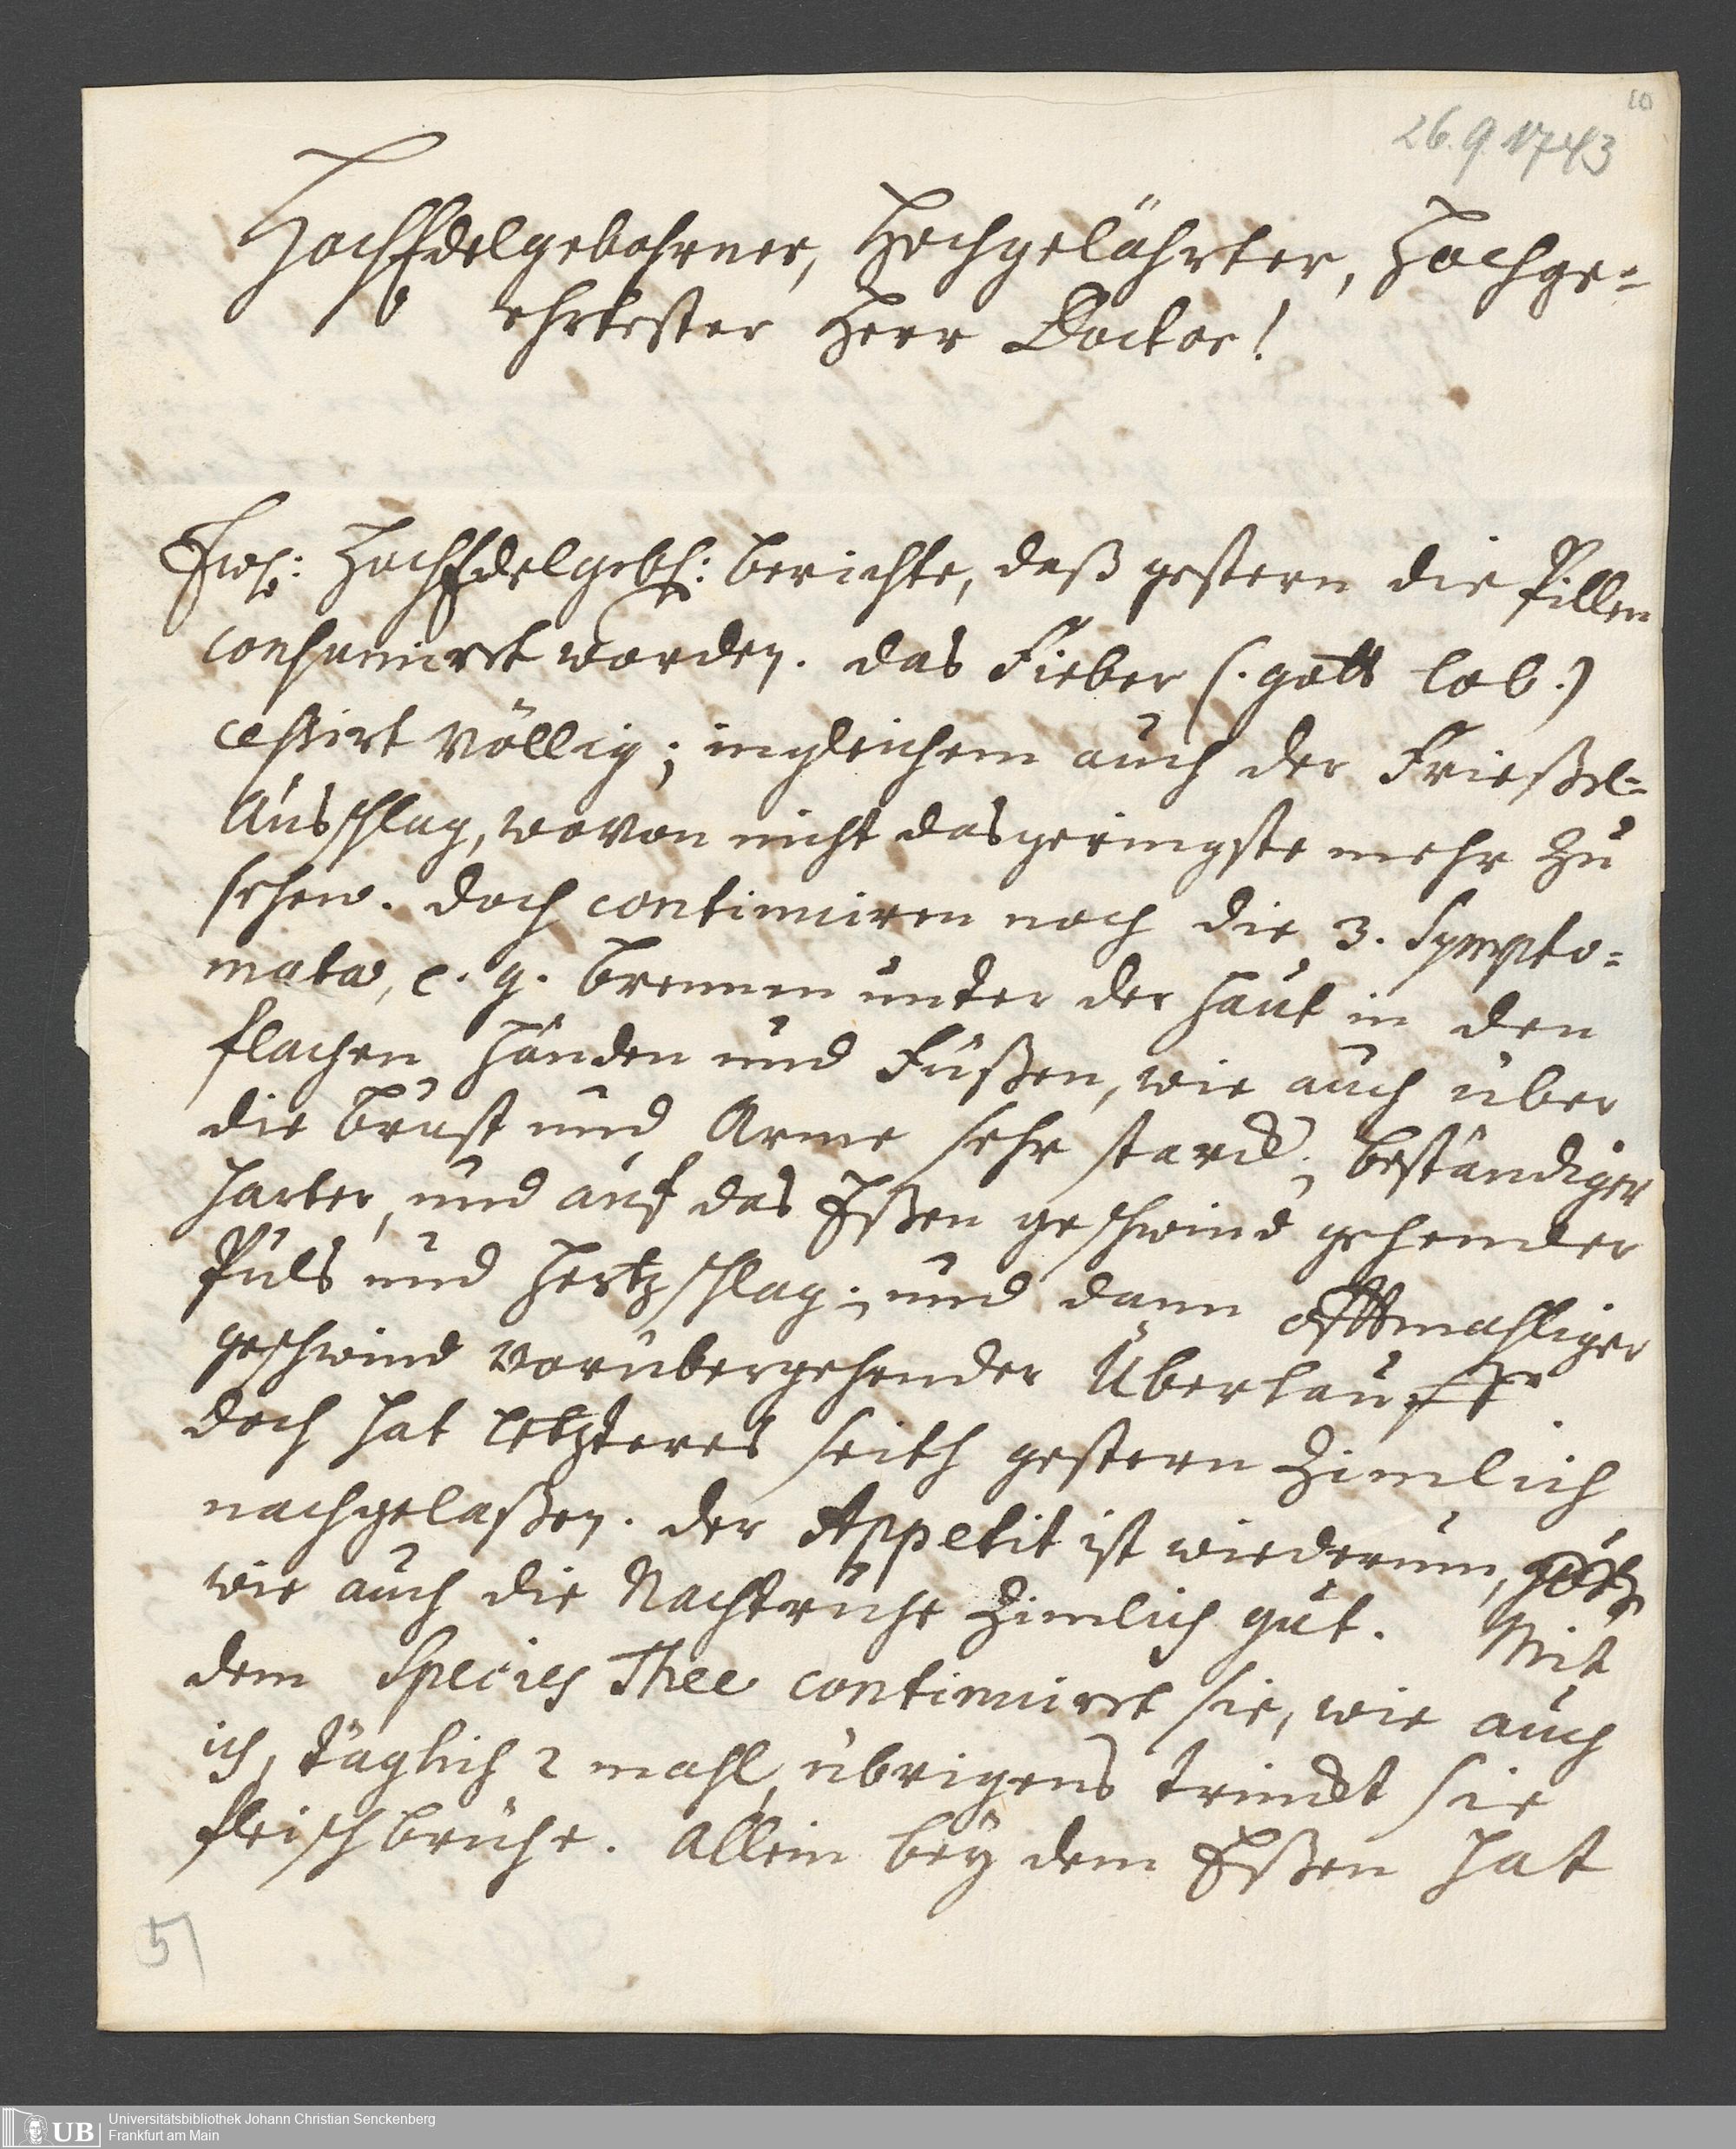 10
26.9.1743
HochEdelgebohrner, Hochgelährter, Hochge-
ehrtester Herr Doctor!
Ewh: HochEdelgebh: berichte, daß gestern die Pillen
consumirt worden. das Fieber (: gott lob :)
cessirt völlig; ingleichem auch der Frießel-
Ausschlag, wovon nicht das geringste mehr zu
sehen. doch continuiren noch die 3. Sympto=
mata, e. g. brennen unter der Haut in den
flachen Händen und Füßen, wie auch über
die brust und Arme sehr starck; beständiger
harter, und auf das Eßen geschwind gehender
Puls und Hertzschlag; und dann offtmahliger
geschwind vorübergehender Überlauff
doch hat letzteres seith gestern zimlich
nachgelaßen. der Appetit ist wiederum,
wie auch die Nachtruhe zimlich gut. Mit
dem Species Thee continuirt sie, wie auch
ich, täglich 2 mahl, übrigens trinckt sie
fleischbrühe. Allein beÿ dem Eßen hat
51
UB
Universitätsbibliothek Johann Christian Senckenberg
Frankfurt am Main